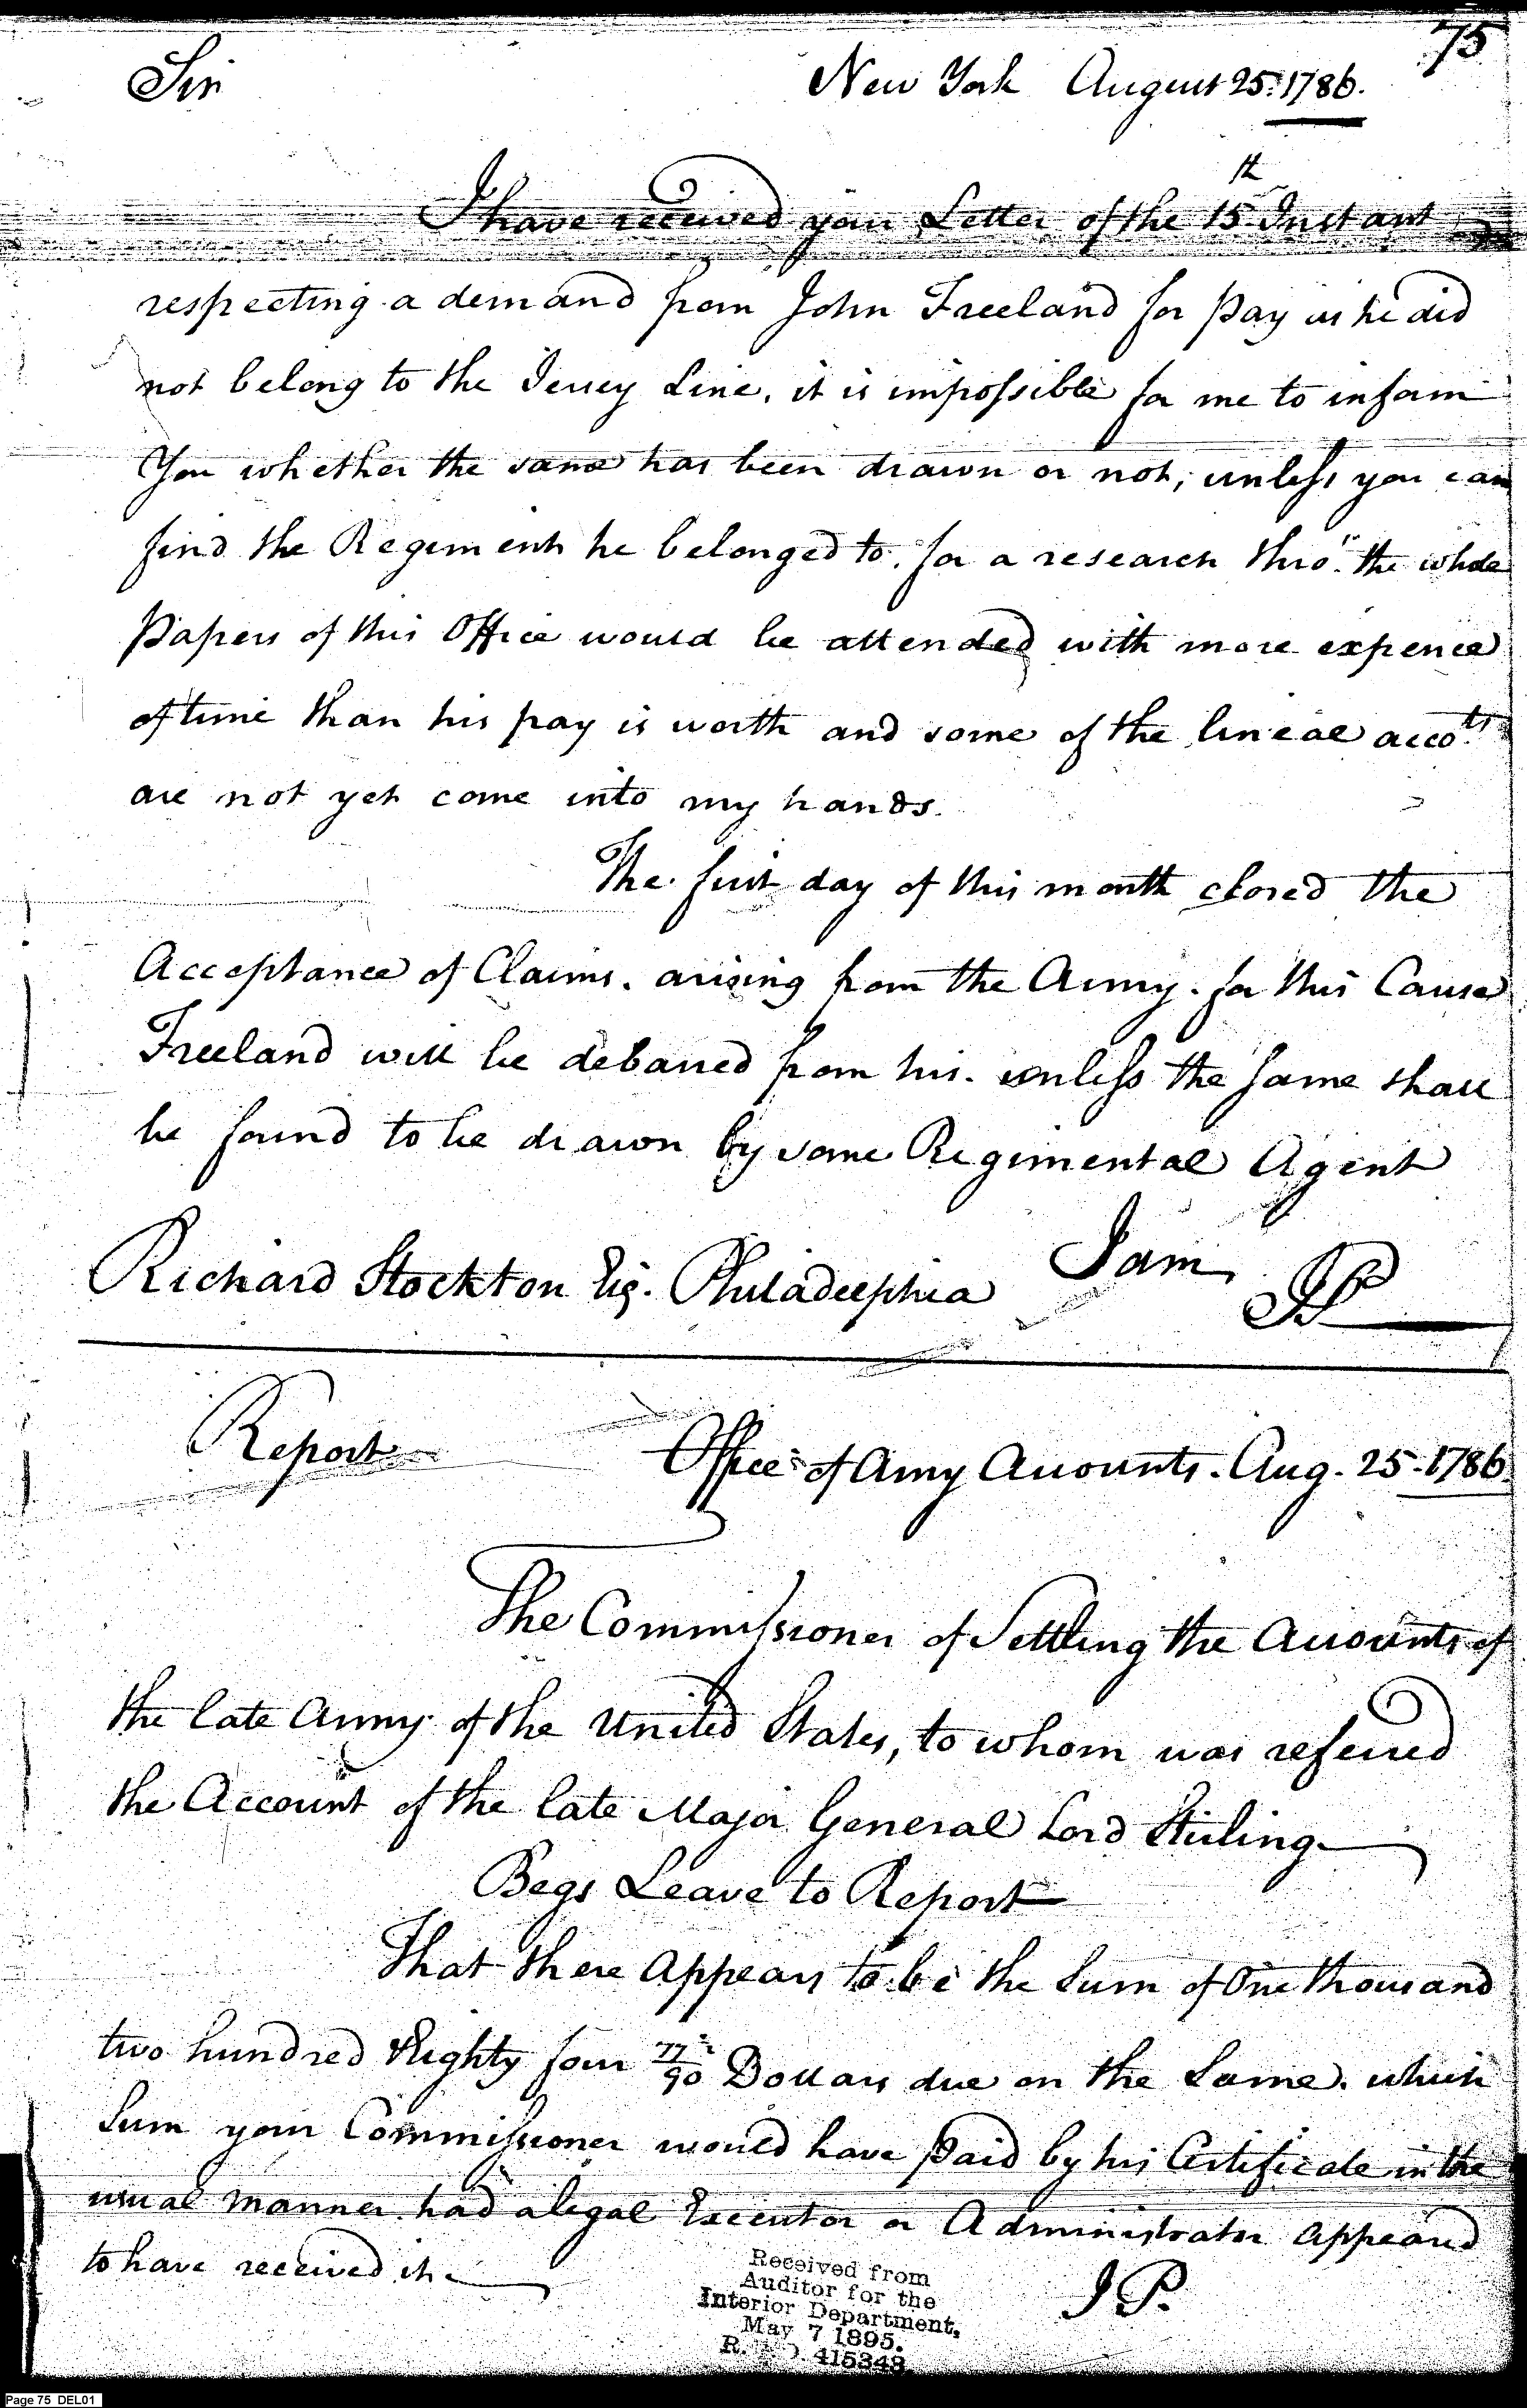 75
Sir New York August 25. 1786.
I have received your Letter of the 15th Instant
respecting a demand from John Freeland for pay as he did
not belong to the Jersey Line, it is impossible for me to inform
You whether the same has been drawn or not, unless you can
find the Regiment he belonged to. for a research thro" the whole
Papers of this Office would be attended with more expence
of time than his pay is worth and some of the lineal accots
are not yet come into my hands.
The first day of this month closed the
Acceptance of Claims. arising from the Army. for this Cause
Freeland will be debarred from his. unless the same shall
be found to be drawn by some Regimental Agent
Richard Stockton Esq. Philadelphia I am, JP
Report Office of Army Accounts. Aug. 25. 1786
The Commissioner of Settling the Accounts of
the late Army of the United States, to whom was referred
the Account of the late Major General Lord Stirling
Begs Leave to Report
That there Appears to be the Sum of One thousand
two hundred & Eighty four 77/90 Dollars due on the Same. which
Sum your Commissioner would have paid by his Certificate in the
usual manner had a legal Executor or Administrator appeared
to have received it
J P.
Received from
Auditor for the
Interior Department,
May 7 1895.
R. 415348
Page 75 DEL01